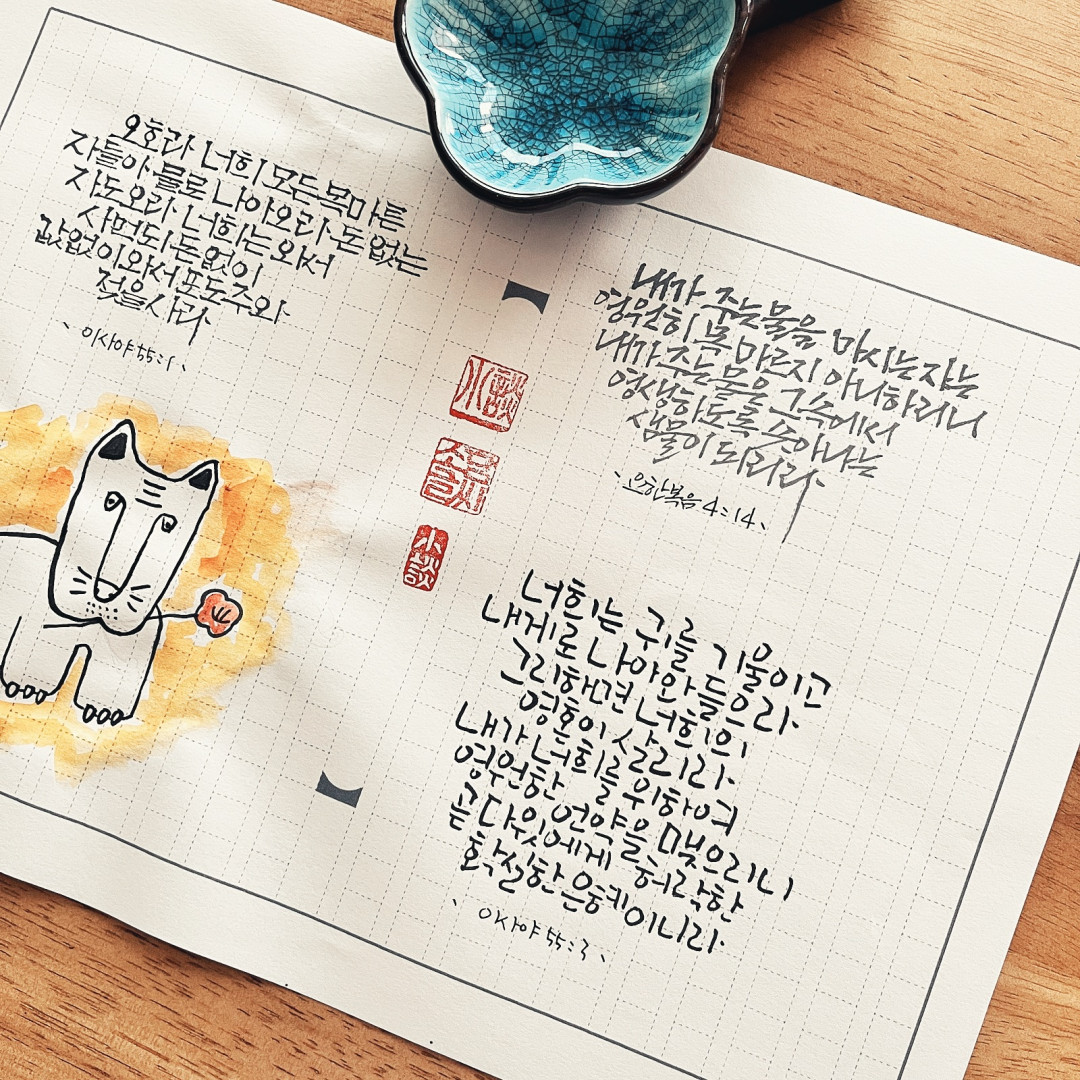 오호라 너희 모든 목마른
자들아 물로 나아오라 돈 없는
자도 오라 너희는 와서
사 먹되 돈 없이
값 없이 와서 포도주와
젖을 사라
이사야 55:1
내가 주는 물을 마시는 자는
영원히 목 마르지 아니하리니
내가 주는 물은 그 속에서
영생하도록 솟아나는
샘물이 되리라
요한복음 4:14
小談
소담
小談
너희는 귀를 기울이고
내게로 나아와 들으라
그리하면 너희의
영혼이 살리라
내가 너희를 위하여
영원한 언약을 맺으리니
곧 다윗에게 허락한
확실한 은혜이니라
이사야 55:3